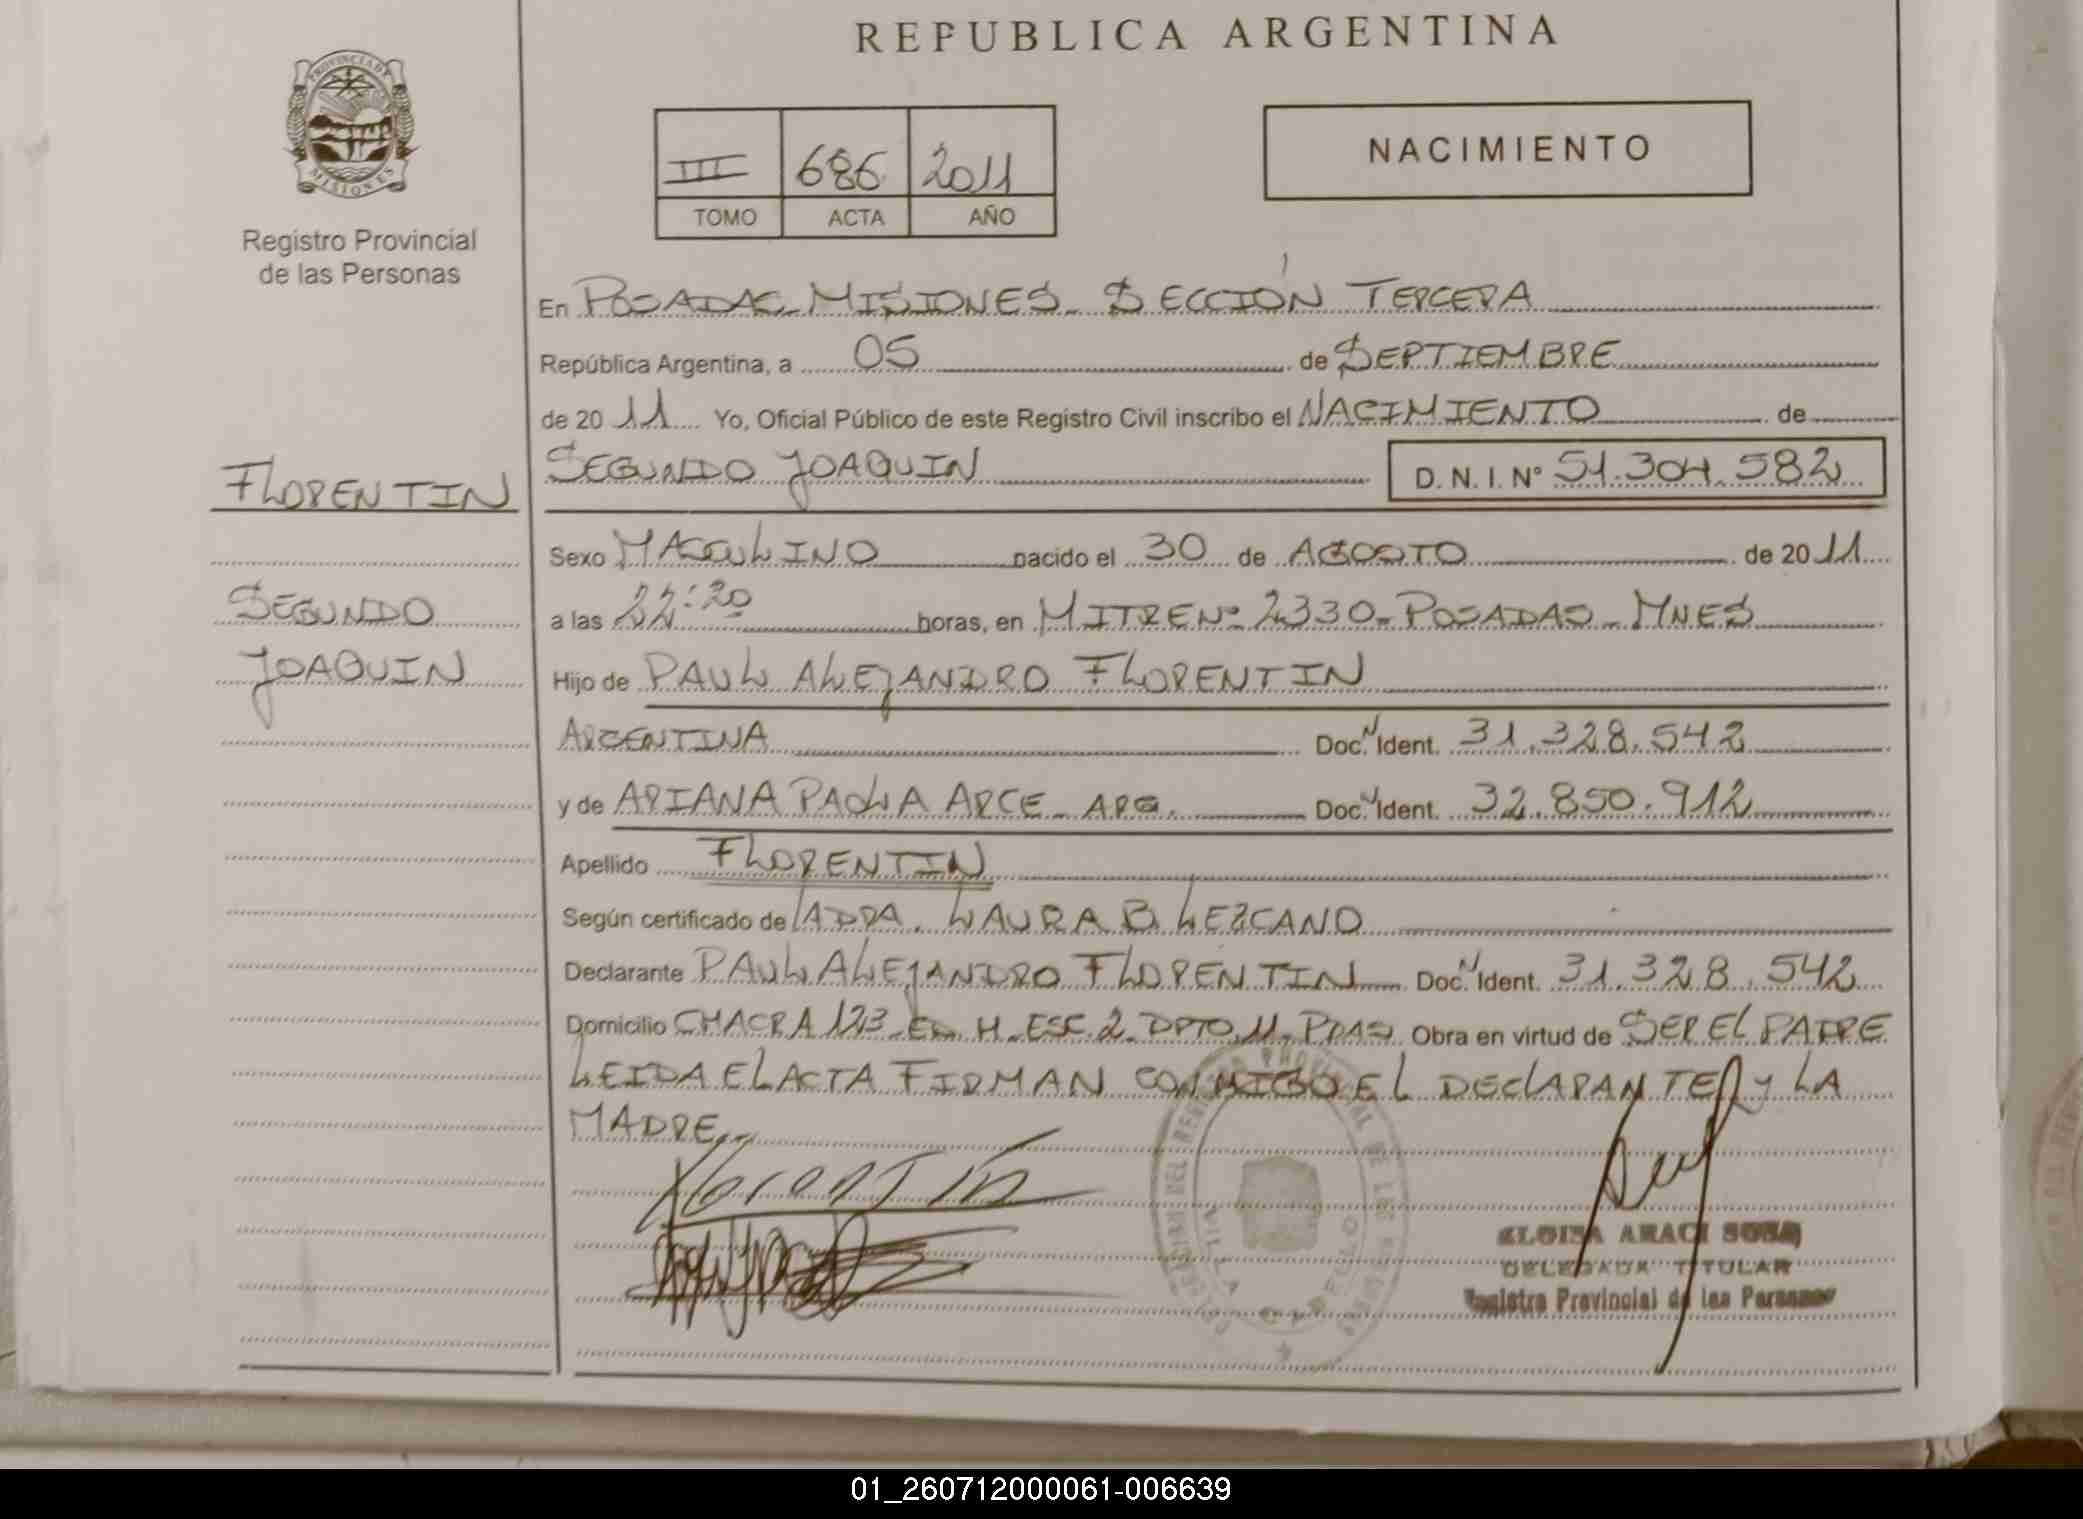 REPUBLICA ARGENTINA
PROVINCIA DE
MISIONES
Registro Provincial
de las Personas
III 686 2011
TOMO ACTA AÑO
NACIMIENTO
En POSADAS-MISIONES- SECCIÓN TERCERA
República Argentina, a 05 de SEPTIEMBRE
de 2011 Yo, Oficial Público de este Registro Civil inscribo el NACIMIENTO de
SEGUNDO JOAQUIN D. N. I. Nº 51.304.582
FLORENTIN
SEGUNDO
JOAQUIN
Sexo MASCULINO nacido el 30 de AGOSTO de 2011
a las 22:20 horas, en MITRE Nº 2330-POSADAS-MNES
Hijo de PAUL ALEJANDRO FLORENTIN
ARGENTINA Doc. Ident. 31.328.542
y de ARIANA PAOLA ARCE- ARG. Doc. Ident. 32.850.912
Apellido FLORENTIN
Según certificado de LAURA B. LEZCANO
Declarante PAUL ALEJANDRO FLORENTIN Doc. Ident. 31.328.542
Domicilio CHACRA 123-ED. H-ESC.2-DPTO.11-PDAS Obra en virtud de SER EL PADRE
LEIDA EL ACTA FIRMAN CONMIGO EL DECLARANTE y LA
MADRE.-
Florentin
ELOISA ARACI SOSA
DELEGADA TITULAR
Registro Provincial de las Personas
01_260712000061-006639